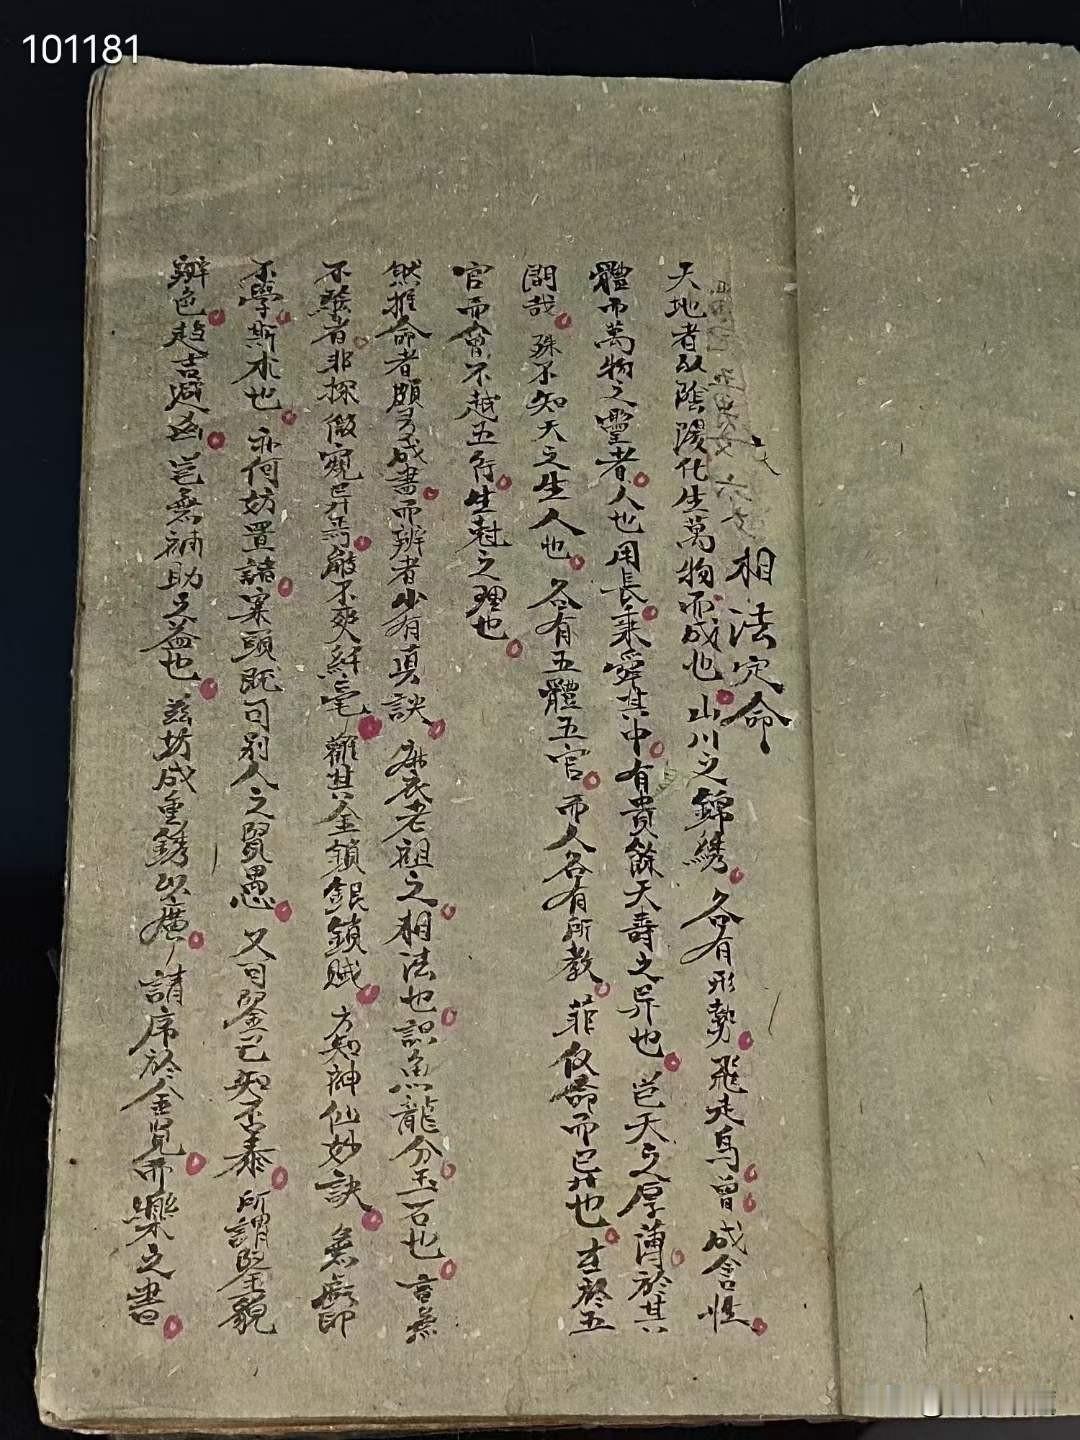 101181
相法定命
天地者以陰陽化生萬物而成也山川之錦綉各有形勢飛走鳥曾成含性
體而萬物之靈者人也用長乘舜其中有貴餘夭壽之异也豈天之厚薄於其
間哉殊不知天之生人也各有五體五官而人各有所教菲仅命而已也主於五
官而會不越五行生尅之理也
然推命者頗多成書而辨者少有真訣麻衣老祖之相法也識魚龍分玉石也言無
不驗者非探微窥异焉能不爽纤毫雖其金鎖銀鎖賦方知神仙妙訣無疑即
不學斯术也亦何妨置諸案頭既可别人之賢愚又可鑒己知否泰所謂鑒貌
辨色趋吉避凶豈無補助之益也兹坊成重鐫以廣請序於余見而樂之書